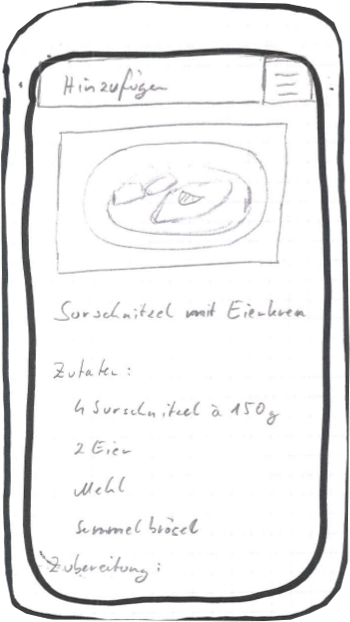 Hinzufügen
Surschnitzel mit Eierkren
Zutaten:
4 Surschnitzel à 150g
2 Eier
Mehl
Semmelbrösel
Zubereitung: